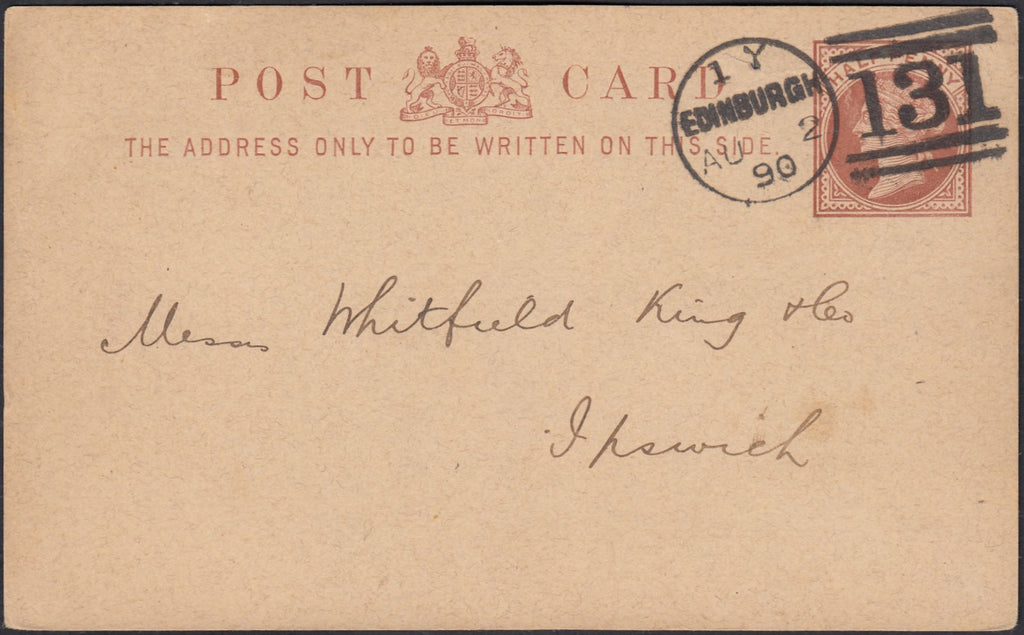 POST CARD
THE ADDRESS ONLY TO BE WRITTEN ON THIS SIDE.
1 Y
EDINBURGH
AU 2
90
131
HALFPENNY
Messrs Whitfield King & Co
Ipswich